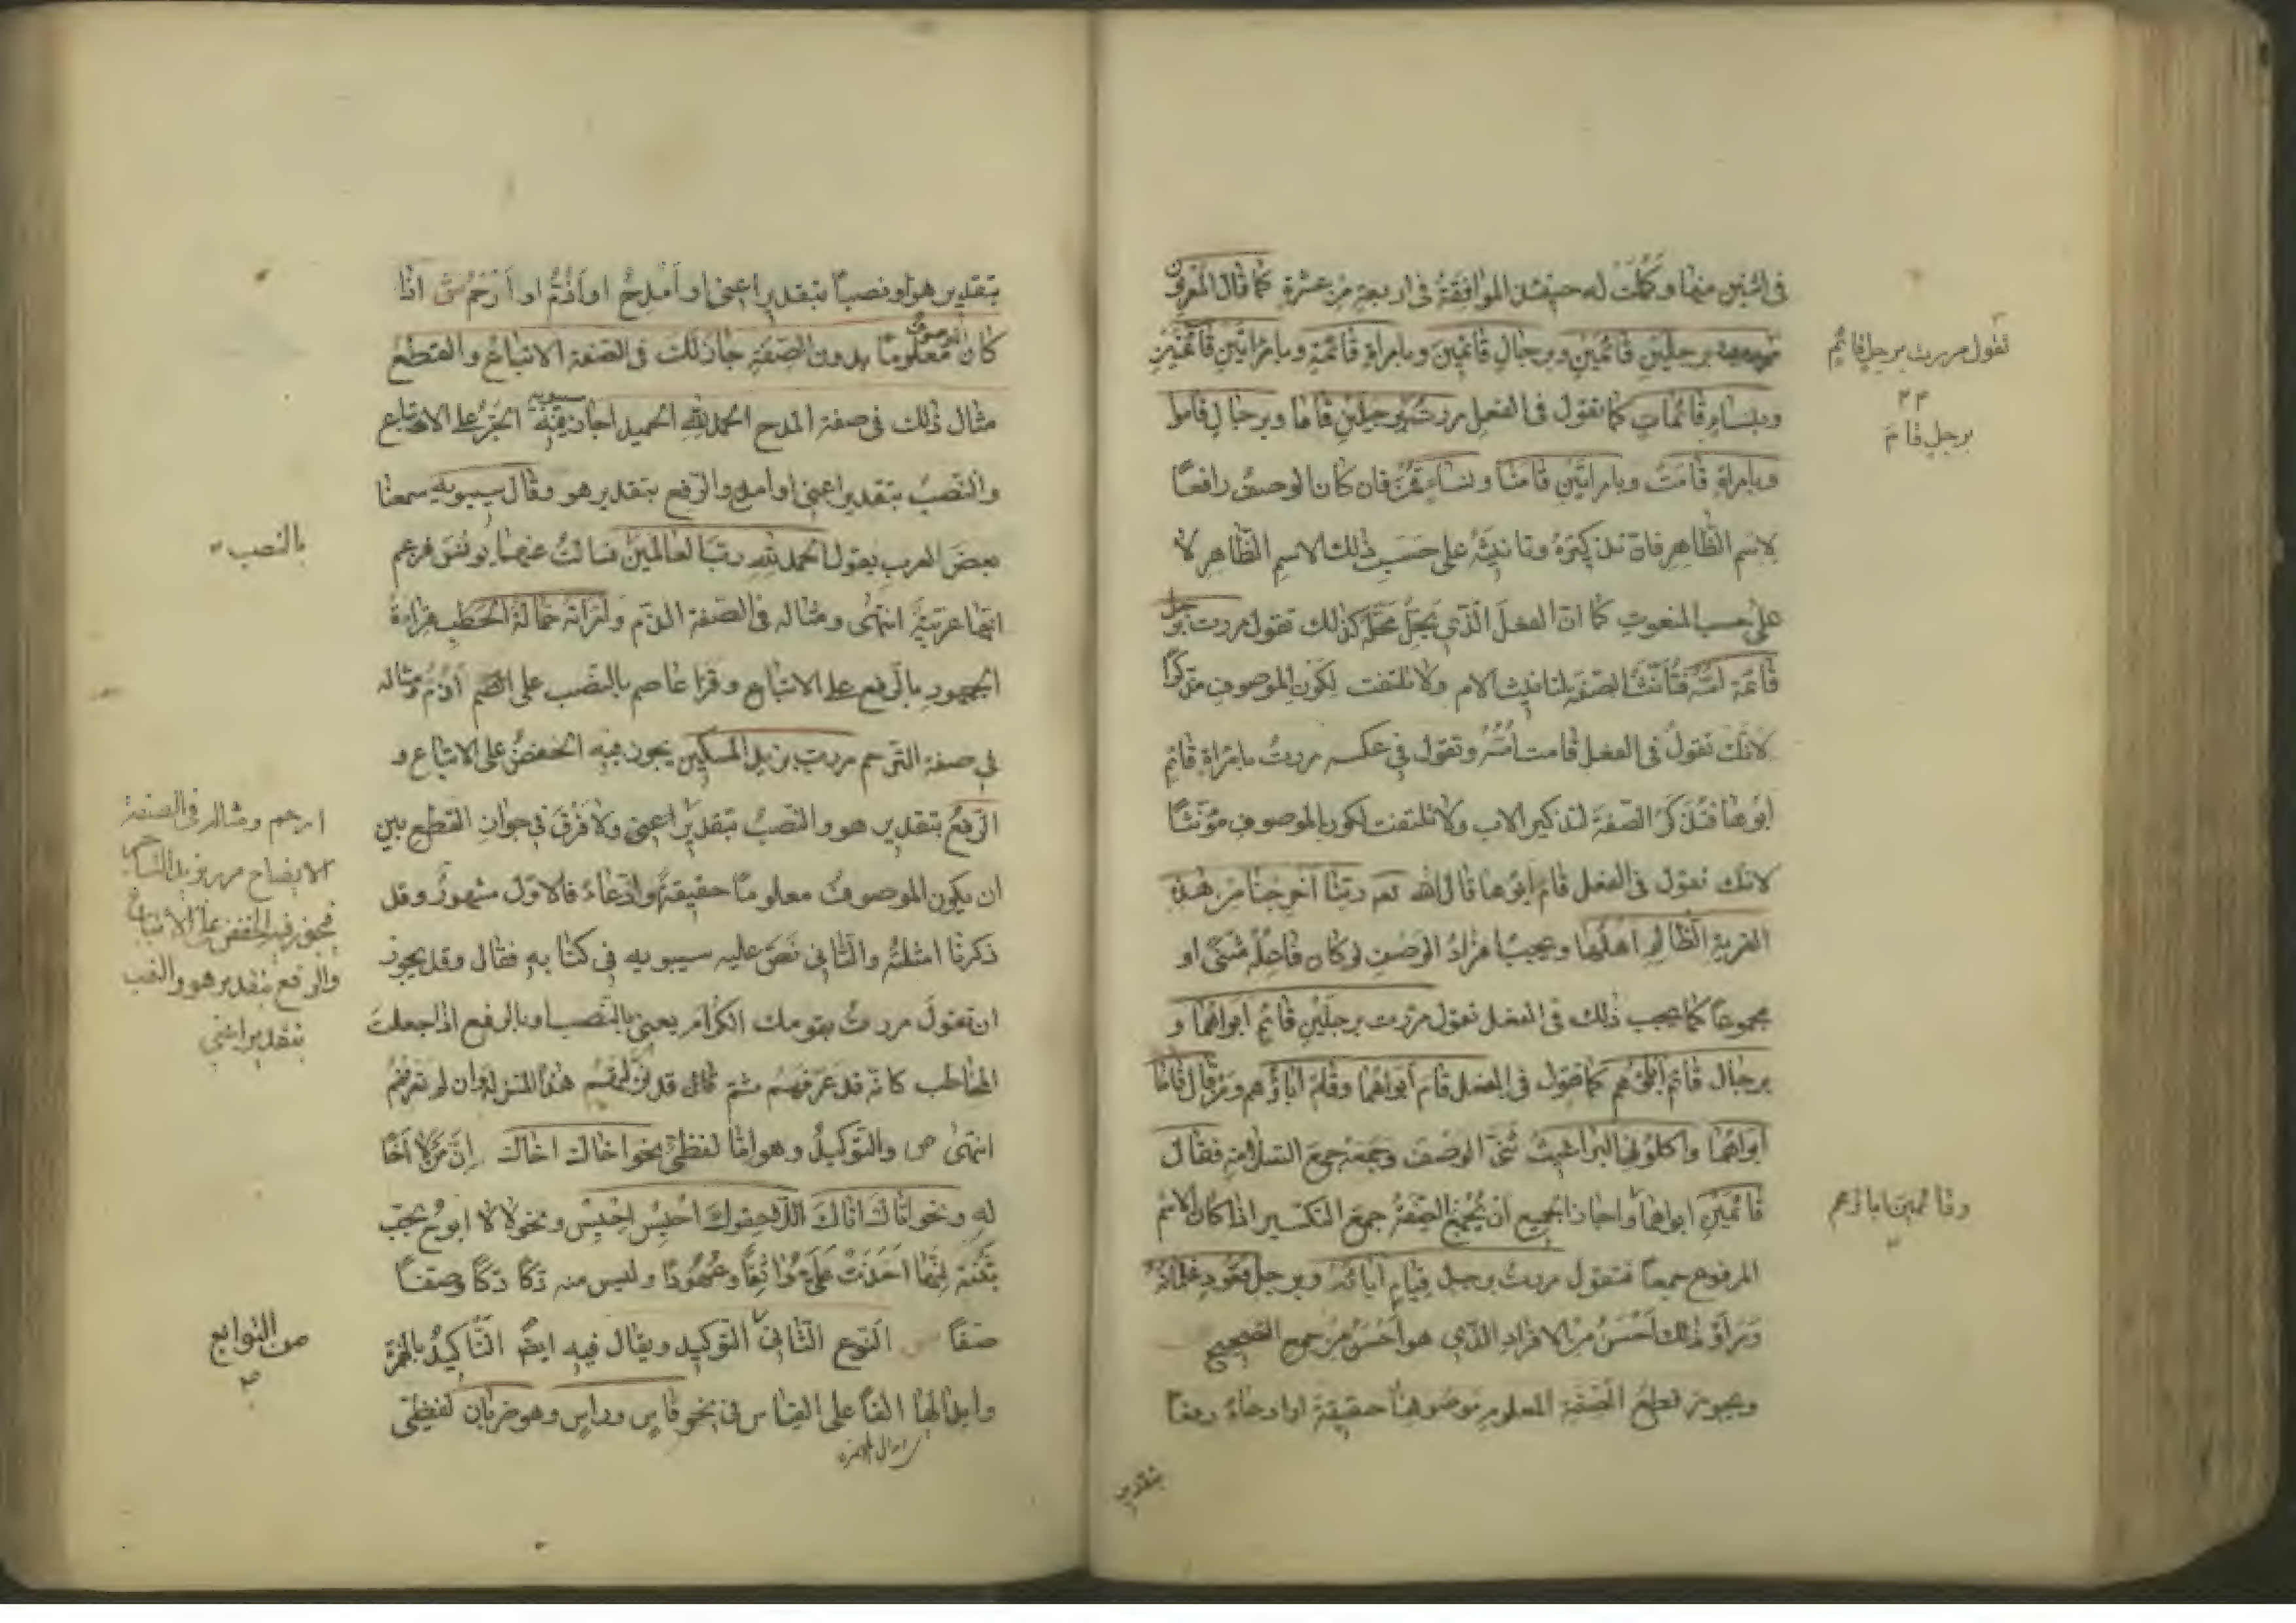 فى اثنين منها وكملت له حينئذ الموافقة فى اربعة من عشرة كما قال المعربون
برجلين قائمين وبرجال قائمين وبامراة قائمة وبامراتين قائمتين
وبنساء قائمات كما تقول فى الفعل مررت برجلين قاما وبرجال قاموا
وبامراة قامت وبامراتين قامتا ونساء قمن فان كان الوصف رافعا
لاسم الظاهر فان تذكيره وتانيثه على حسب ذلك الاسم الظاهر لا
على حسب المنعوت كما ان الفعل الذي يحل محله كذلك تقول مررت برجل
قائمة امه فتانث الصفة لتانيث الام ولا تلتفت لكون الموصوف مذكرا
لانك تقول فى الفعل قامت امه وتقول في عكسه مررت بامراة قائم
ابوها فتذكر الصفة لتذكير الاب ولا تلتفت لكون الموصوف مؤنثا
لانك تقول فى الفعل قام ابوها قال الله تعـ ربنا اخرجنا من هذه
القرية الظالم اهلها ويجب افراد الوصف لو كان فاعله مثنى او
مجموعا كما يجب ذلك فى الفعل تقول مررت برجلين قائم ابواهما و
برجال قائم اباؤهم كما تقول فى الفعل قام ابواهما وقام اباؤهم ومن قال قاما
ابواهما واكلونى البراغيث ثنى الوصف وجمعه جمع السلامة فقال
قائمين ابواهما واجاز الجميع ان تجمع الصفة جمع التكسير اذا كان الاسم
المرفوع جمعا فتقول مررت برجل قيام اباؤه وبرجل قعود غلمانه
وراو ذلك احسن من الافراد الذي هو احسن من جمع التصحيح
ويجوز قطع الصفة المعلوم موصوفها حقيقة او ادعاء رفعا
بتقدير
تقول مررت برجل قائم
برجل قام
وقائمين اباؤهم
بتقدير هو او نصبا بتقدير اعنى او امدح او اذم او ارحم ش اذا
كان الموصوف معلوما بدون الصفة جاز لك فى الصفة الاتباع والقطع
مثال ذلك فى صفة المدح الحمد لله الحميد اجاز فيه سيبويه الجر على الاتباع
والنصب بتقدير اعنى او امدح والرفع بتقدير هو وقال سيبويه سمعنا
بعض العرب يقول الحمد لله رب العالمين فسالت عنها يونس فزعم
انها عربية انتهى ومثاله فى الصفة الذم وامراته حمالة الحطب قراءة
الجمهور بالرفع على الاتباع وقرا عاصم بالنصب على الذم اذم ومثاله
في صفة الترحم مررت بزيد المسكين يجوز فيه الخفض على الاتباع و
الرفع بتقدير هو والنصب بتقدير اعنى ولا فرق في جواز القطع بين
ان يكون الموصوف معلوما حقيقة او ادعاء فالاول مشهور وقد
ذكرنا امثلته والثانى نص عليه سيبويه فى كتابه فقال وقد يجوز
ان تقول مررت بقومك الكرام يعنى بالنصب او بالرفع اذا جعلت
المخاطب كانه قد عرفهم ثم قال قد نزلتهم هذه المنزلة وان لم تعرفهم
انتهى ص والتوكيد وهو اما لفظى نحو اخاك اخاك ان من لا اخا
له ونحو اتاك اتاك اللاحقوك احبس احبس ونحو لا لا ابوح بحب
بثنة انها اخذت على مواثقا وعهودا وليس منه دكا دكا وصفا
صفا ش النوع الثانى التوكيد ويقال فيه ايضا التاكيد بالهمزة
وابدالها الفا على القياس فى نحو فاس وراس وهو ضربان لفظى
بالنصب
ارحم ومثاله فى الصفة
الايضاح مررت بزيد التاجر
فيجوز فيه الخفض على الاتباع
والرفع بتقدير هو والنصب
بتقدير اعنى
من التوابع